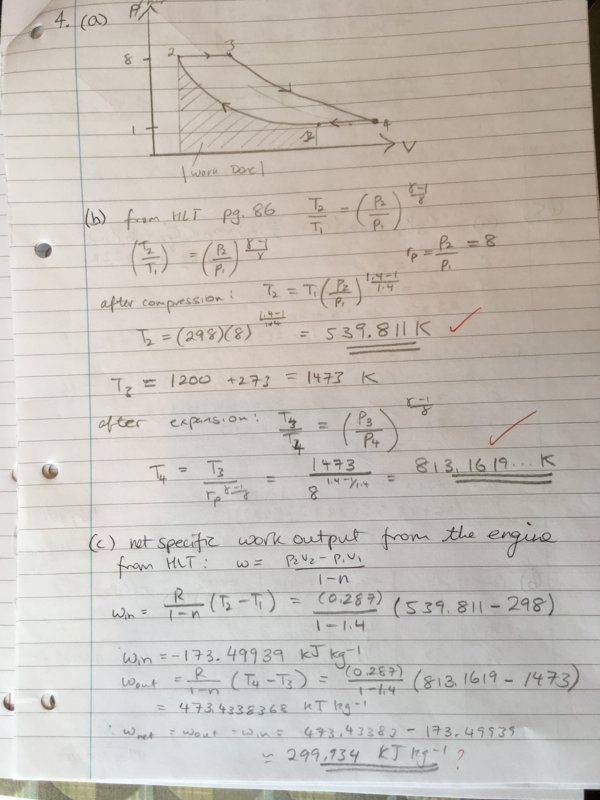 4. (a)
P
8
2
3
1
4
V
|Work Done|
(b) from HLT pg. 86 T₂/T₁ = (P₂/P₁)^(γ-1/γ)
(T₂/T₁) = (P₂/P₁)^(γ-1/γ) rₚ = P₂/P₁ = 8
after compression: T₂ = T₁(P₂/P₁)^(1.4-1/1.4)
T₂ = (298)(8)^(1.4-1/1.4) = 539.811 K ✓
T₃ = 1200 + 273 = 1473 K
after expansion: T₃/T₄ = (P₃/P₄)^(γ-1/γ)
T₄ = T₃/rₚ^(γ-1/γ) = 1473/8^(1.4-1/1.4) = 813.1619... K ✓
(c) net specific work output from the engine
from HLT: w = P₂V₂ - P₁V₁/1-n
Win = R/1-n (T₂-T₁) = (0.287)/1-1.4 (539.811 - 298)
Win = -173.49939 kJ kg⁻¹
Wout = R/1-n (T₄-T₃) = (0.287)/1-1.4 (813.1619 - 1473)
= 473.4338368 kJ kg⁻¹
∴ Wnet = Wout - Win = 473.43383 - 173.49939
≃ 299.934 kJ kg⁻¹ ?